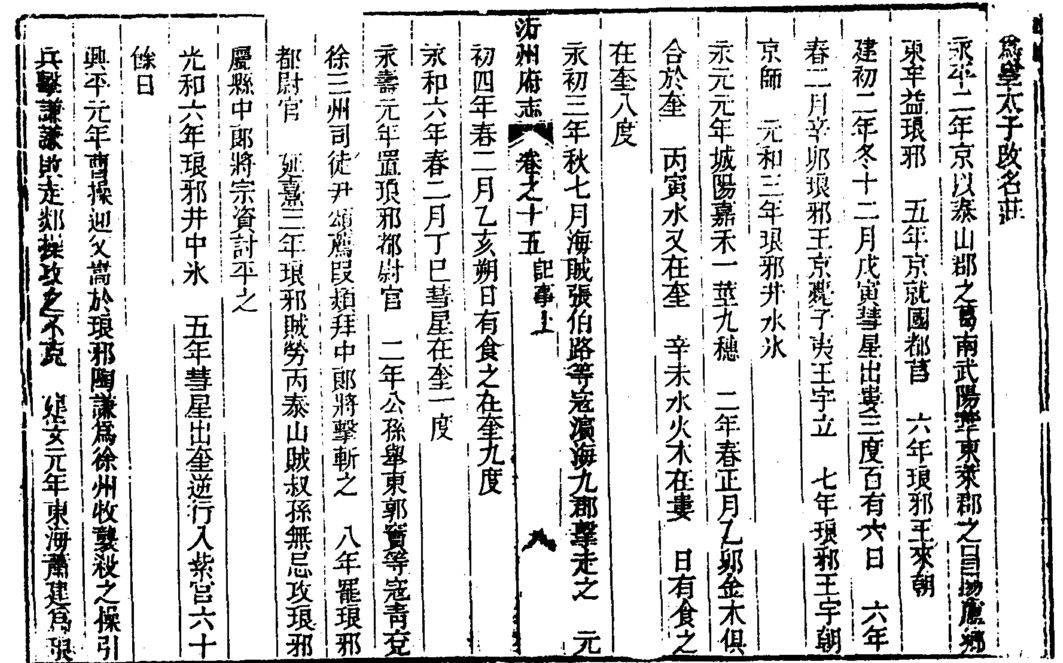 爲皇太子改名莊
永平二年京以泰山郡之葛南武陽華東萊郡之昌陽廬鄉
東牟益琅邪　五年京就國都莒　六年琅邪王來朝
建初二年冬十二月戊寅彗星出婁三度百有六日　六年
春二月辛卯琅邪王京薨子夷王宇立　七年琅邪王宇朝
京師　元和三年琅邪井水氷
永元元年城陽嘉禾一莖九穗　二年春正月乙卯金木俱
合於奎　丙寅水又在奎　辛未水火木在婁　日有食之
在奎八度
永初三年秋七月海賊張伯路等寇濵海九郡擊走之　元
沂州府志　卷之十五　記事上　八
初四年春二月乙亥朔日有食之在奎九度
永和六年春二月丁巳彗星在奎一度
永壽元年置琅邪都尉官　二年公孫舉東郭竇等寇青兗
徐三州司徒尹頌薦段熲拜中郎將擊斬之　八年罷琅邪
都尉官　延熹三年琅邪賊勞丙泰山賊叔孫無忌攻琅邪
屬縣中郎將宗資討平之
光和六年琅邪井中氷　五年彗星出奎逆行入紫宮六十
餘日
興平元年曹操迎父嵩於琅邪陶謙爲徐州牧襲殺之操引
兵擊謙謙敗走郯操攻之不克　建安元年東海蕭建爲琅